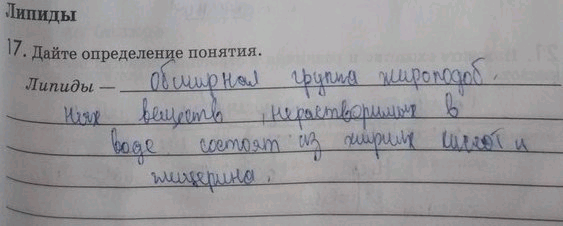 Липиды
17. Дайте определение понятия.
Липиды — обширная группа жироподоб.
ных веществ, нерастворимых в
воде состоят из жирных кислот и
глицерина.